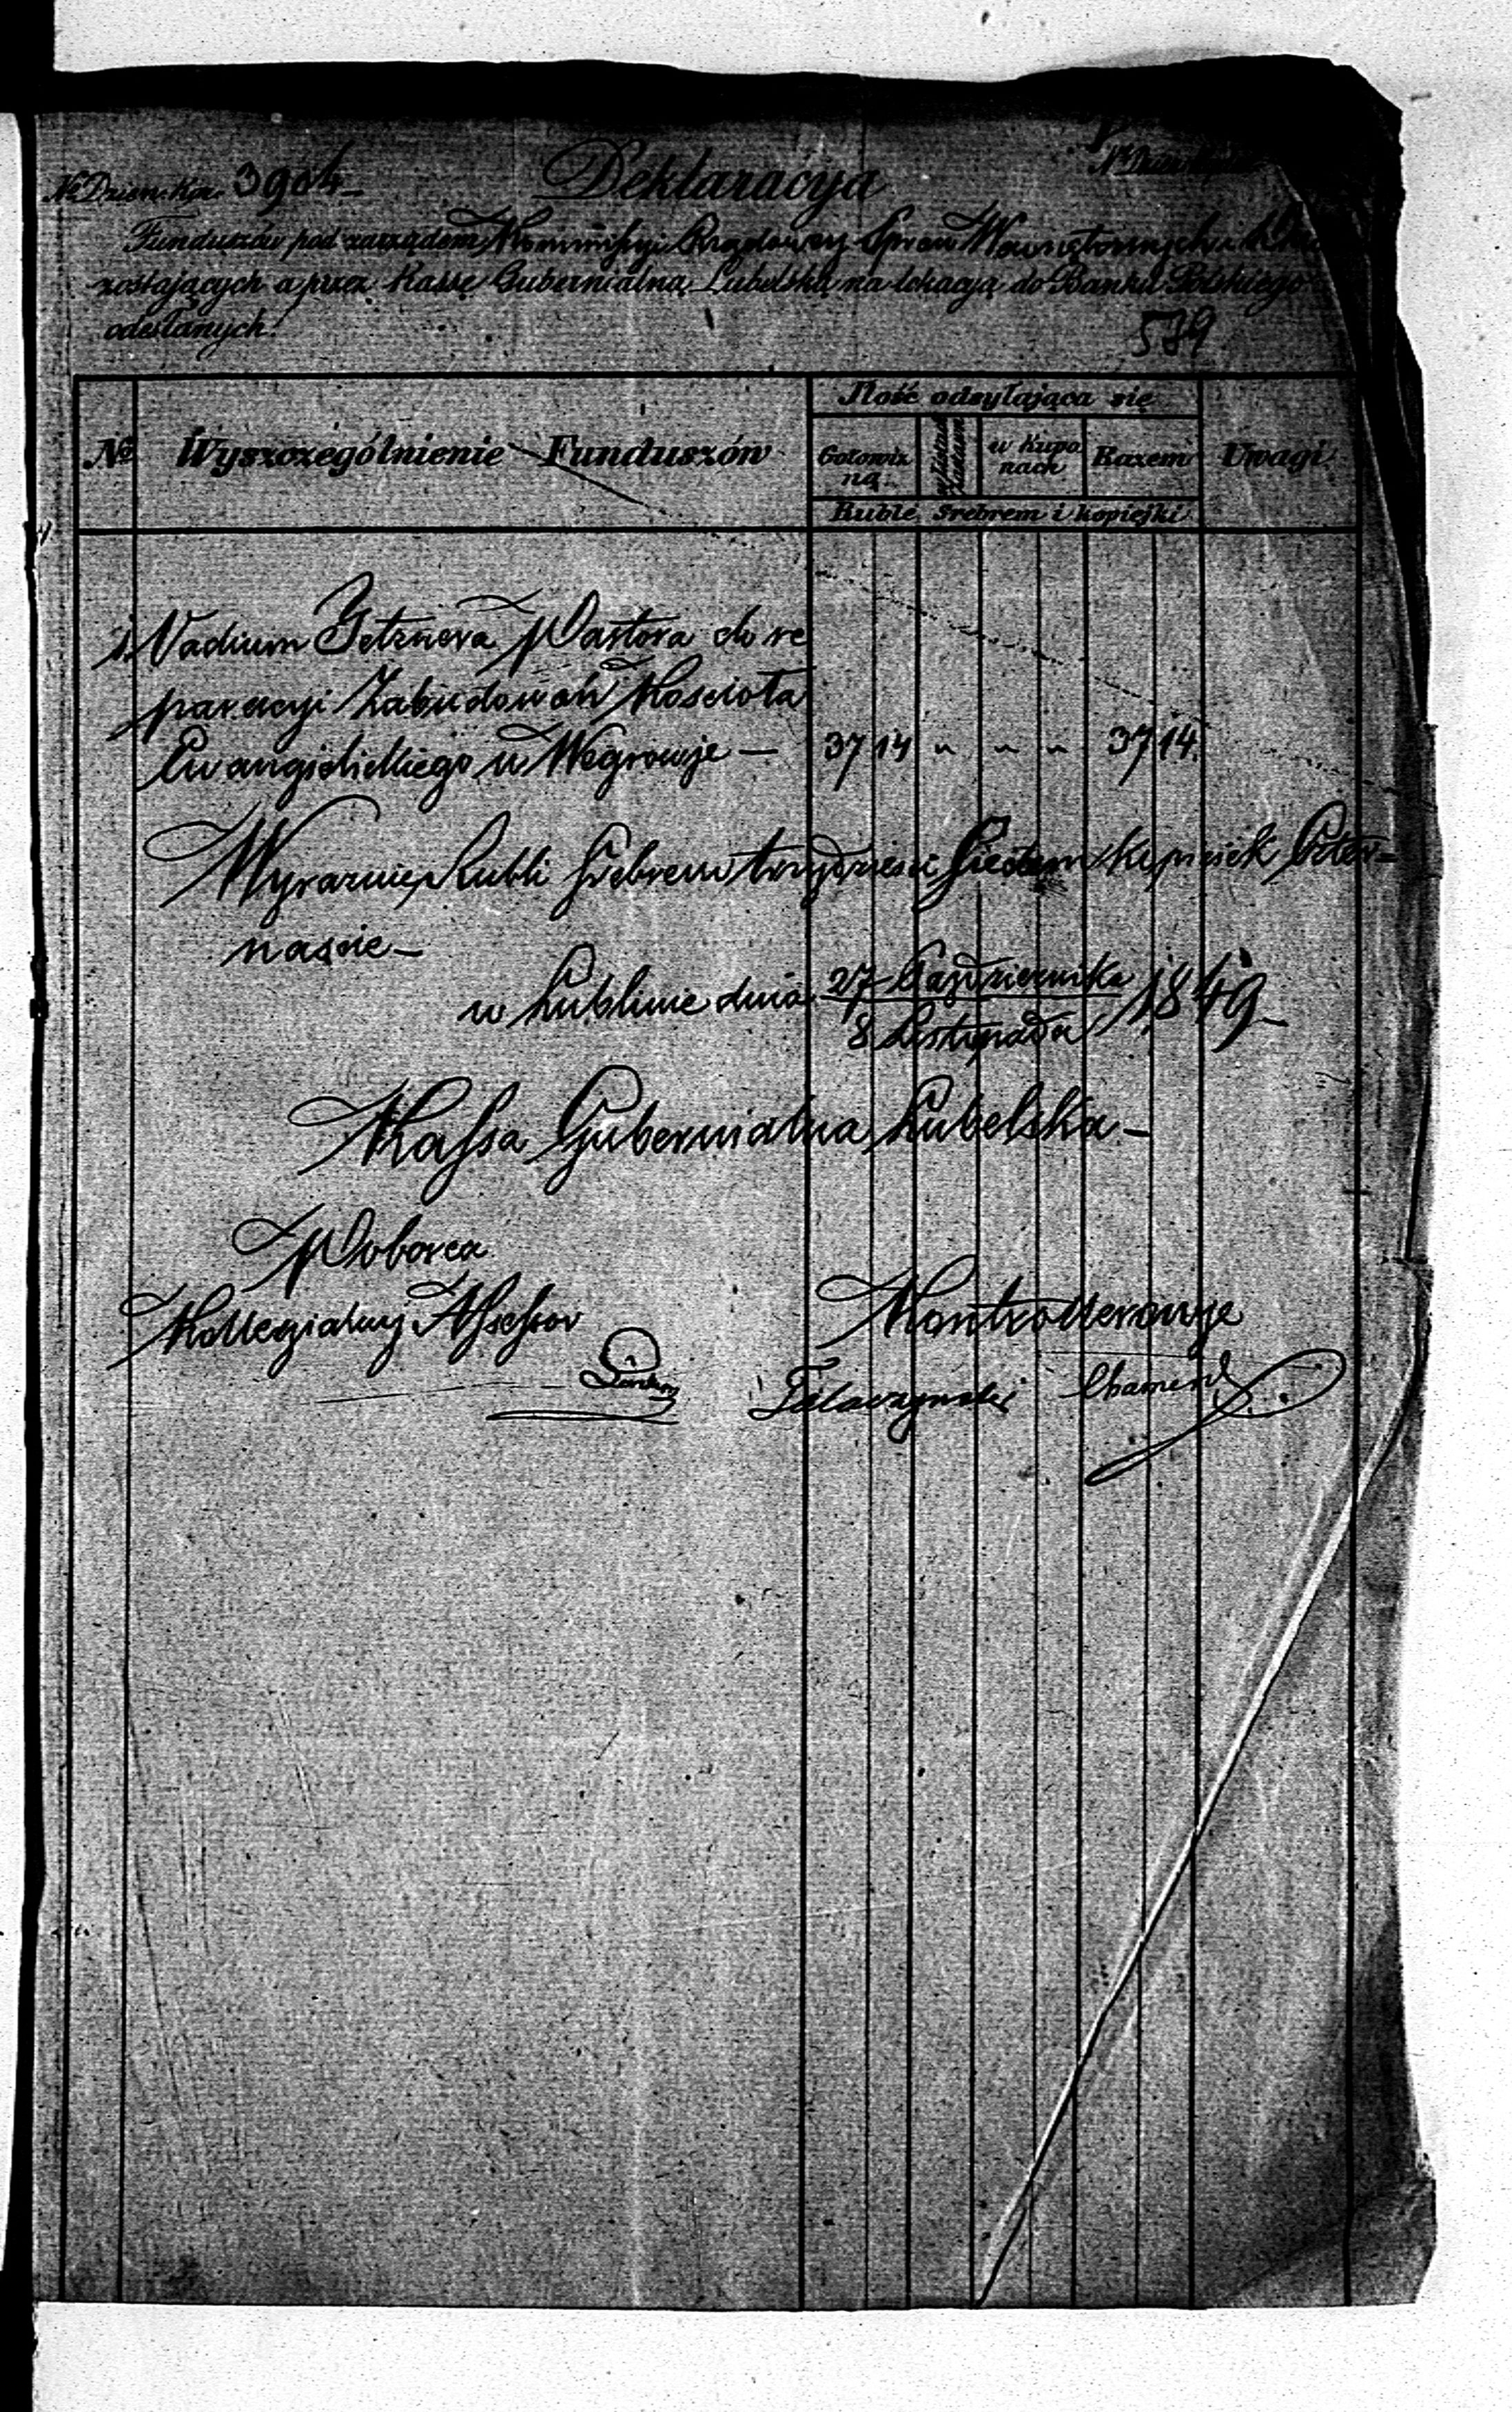 № Dzien. Kps. 3904
Deklaracya
№ Dzien.
Funduszów pod zarządem Kommissyi Rządowey Spraw Wewnętrznych i
zostających a przez Kassę Gubernialną Lubelską na lokacyą do Banku Polskiego
odesłanych.
579
№ Wyszczególnienie Funduszów Ilość odsyłająca się Uwagi
Gotowiz ną w Listach Zastaw w Kupo nach Razem
Ruble srebrem i kopiejki
1. Vadium Jetznera Pastora do re
paracyi Zabudowań Kościoła
Ewangielickiego w Węgrowie — 37 14 " " " 37 14.
Wyraźnie Rubli Srebrem trzydzieści siedem kopiejek Czter=
naście —
w Lublinie dnia 27 Października / 8 Listopada 1849 —
Kassa Gubernialna Lubelska —
Poborca
Kollegialny Assessor Kontrollerowie